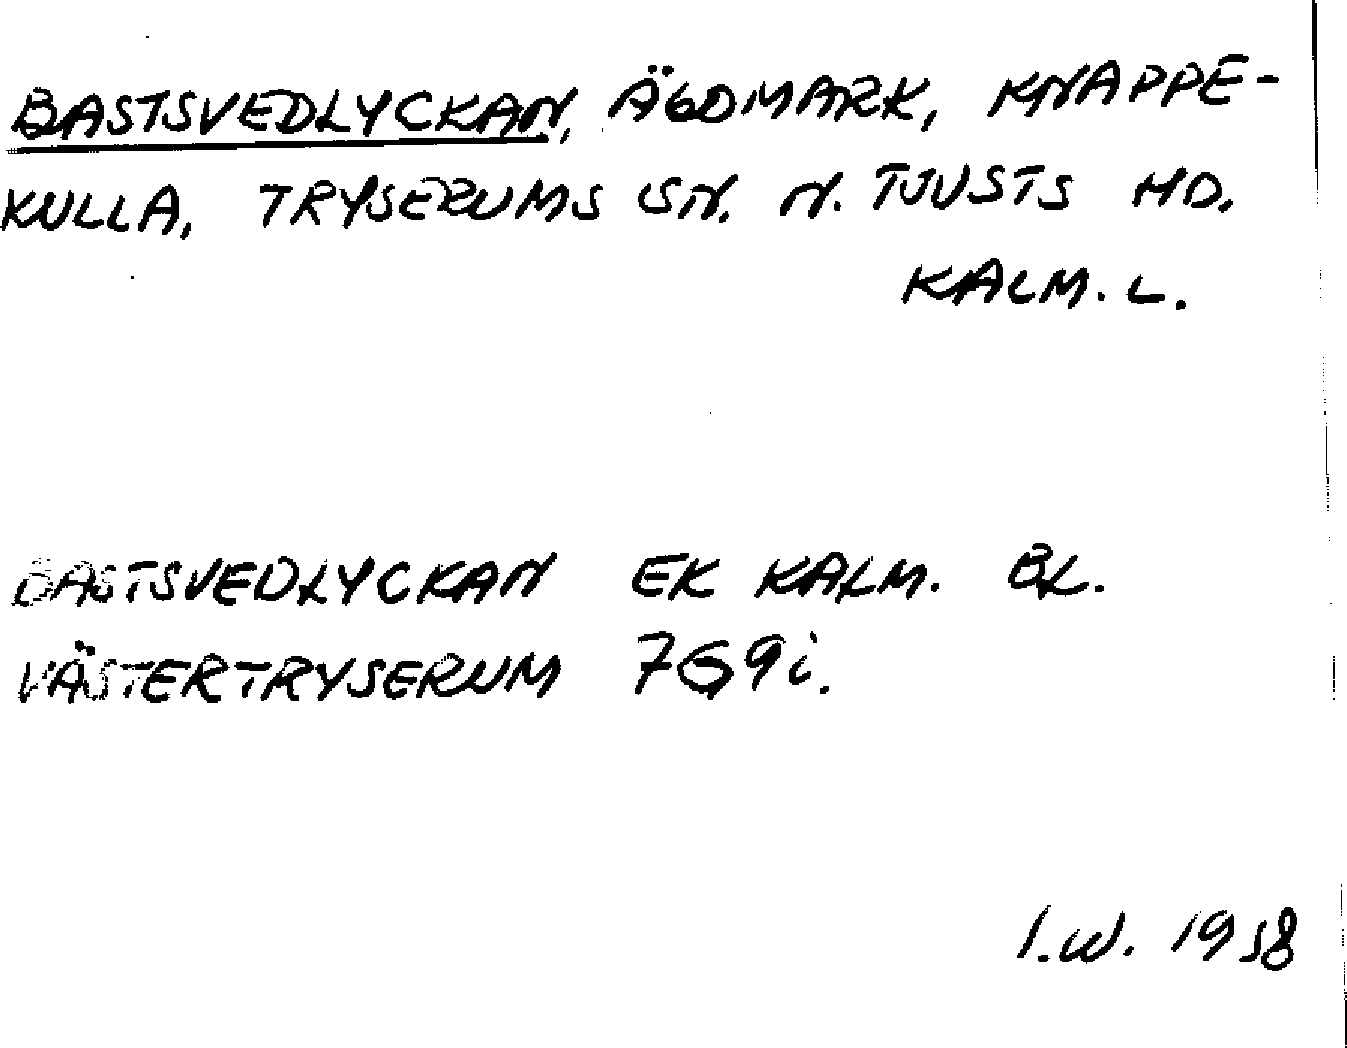 BASTSVEDLYCKAN, ÄGDMARK, KNAPPE-
KULLA, TRYSERUMS SN. N. TJUSTS HD.
KALM. L.
BASTSVEDLYCKAN EK KALM. BL.
VÄSTERTRYSERUM 7G9i.
I.W. 1958